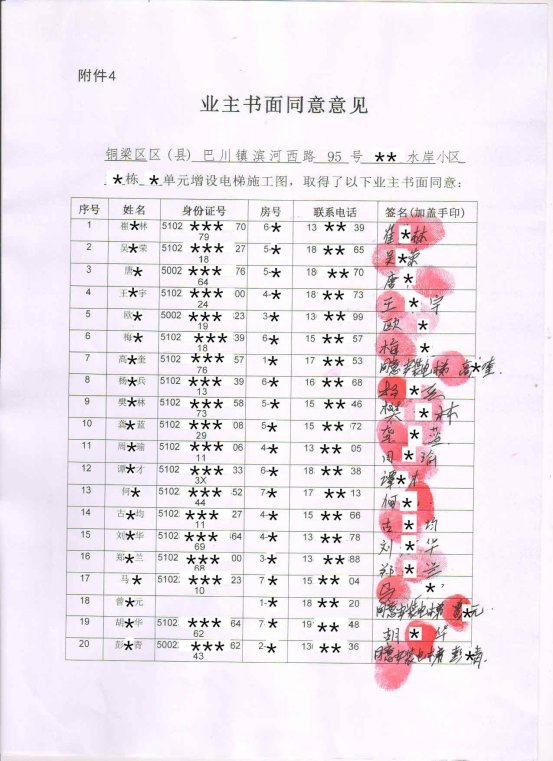 附件4
业主书面同意意见
铜梁区区(县)巴川镇滨河西路 95 号 ** 水岸小区
*栋 *单元增设电梯施工图，取得了以下业主书面同意：
序号 姓名 身份证号 房号 联系电话 签名(加盖手印)
1 崔*林 5102 *** 70 6* 13 ** 39 崔*林
79
2 吴*荣 5102 *** 27 5* 18 ** 65 吴*荣
18
3 唐* 5002 *** 76 5* 18 ** 70 唐*
64
4 王*宇 5102 *** 00 4* 18 ** 73 王*宇
24
5 欧* 5002 *** 23 3* 13 ** 99 欧*
19
6 梅* 5102 *** 39 6* 15 ** 57 梅*
18
7 高*奎 5102 *** 57 1* 17 ** 53 同意安装电梯 高*奎
76
8 杨*兵 5102 *** 39 6* 16 ** 68 杨*兵
13
9 樊*林 5102 *** 58 5* 15 ** 46 樊*林
73
10 龚*蓝 5102 *** 08 5* 15 ** 72 龚*蓝
29
11 周*瑜 5102 *** 06 4* 13 ** 05 周*瑜
11
12 谭*才 5102 *** 33 6* 18 ** 38 谭*才
3X
13 何* 5102 *** 52 7* 17 ** 13 何*
44
14 古*均 5102 *** 27 4* 15 ** 66 古*均
11
15 刘*华 5102 *** 64 4* 13 ** 78 刘*华
69
16 郑*兰 5102 *** 00 3* 13 ** 88 郑*兰
68
17 马* 5102 *** 23 7* 15 ** 04 *
10
18 曾*元 1* 18 ** 20 同意安装电梯 曾*元
19 胡*华 5102 *** 64 7* 19 ** 48 胡*华
62
20 彭*青 5002 *** 62 2* 13 ** 36 同意安装电梯 彭*青
43